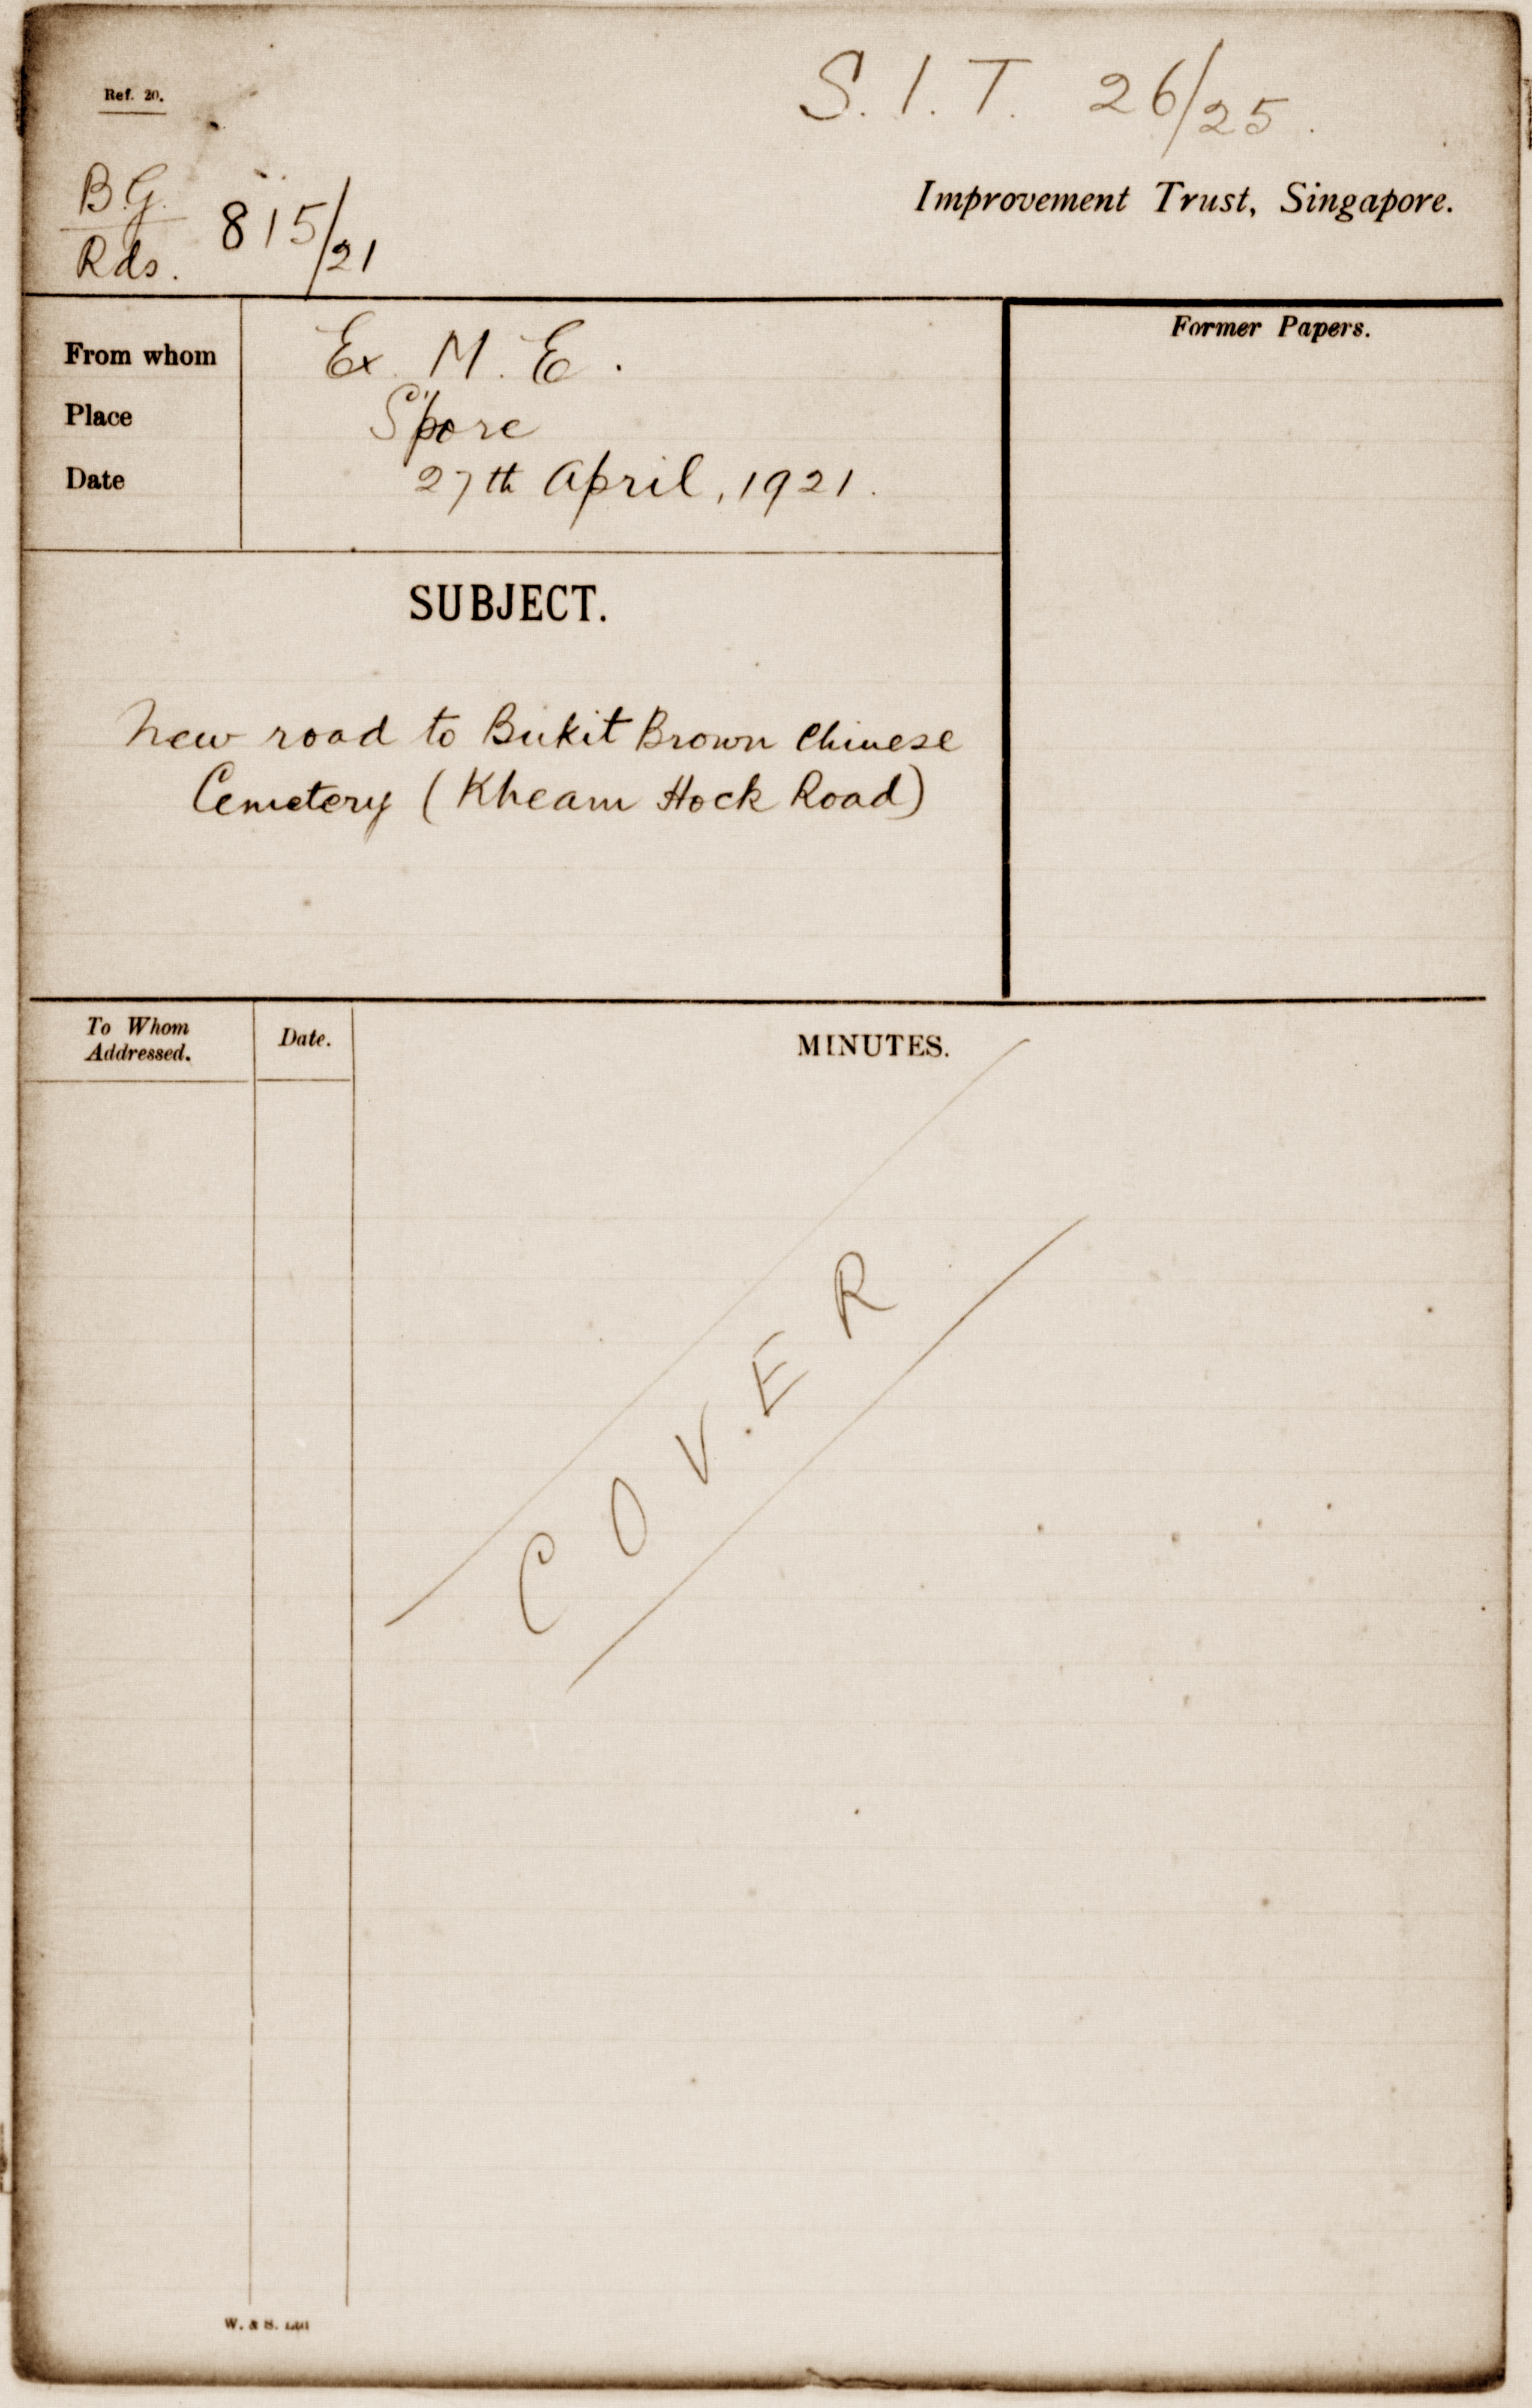 Ref. 20.
S. I. T. 26/25.
B.G. 815/21
Rds.
Improvement Trust, Singapore.
From whom Ex. M. E.
Place S'pore
Date 27th April, 1921.
Former Papers.
SUBJECT.
New road to Bukit Brown Chinese
Cemetery (Kheam Hock Road)
To Whom
Addressed.
Date.
MINUTES.
COVER
W. & S. Ltd